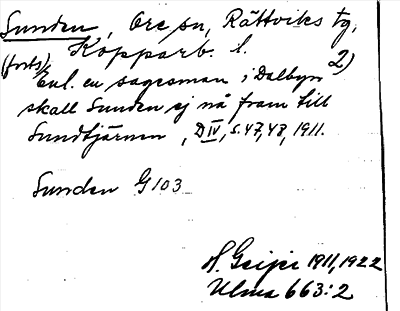 Sunden, Ore sn, Rättviks tg,
Kopparb. l.
(forts). 2)
Enl. en sagesman i Dalbyn
skall Sunden ej nå fram till
Sundtjärnen, D IV, s. 47, 48, 1911.
Sunden G 103
H. Geijer 1911, 1922
Ulma 663:2